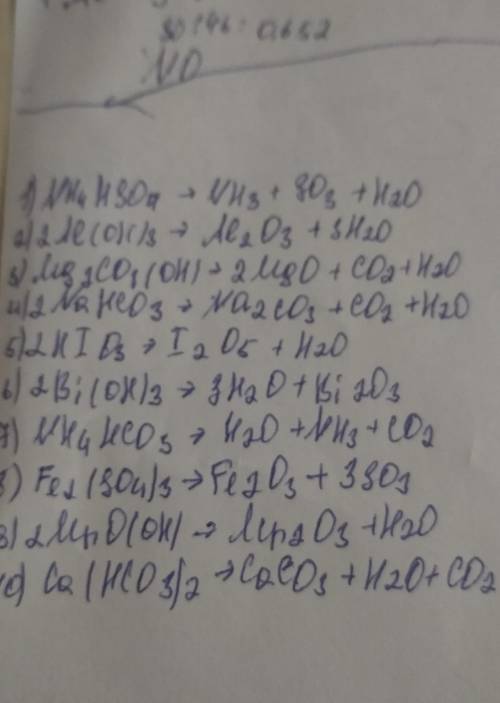 NO
1) NH4HSO4 → NH3 + SO3 + H2O
2) 2Al(OH)3 → Al2O3 + 3H2O
3) Mg2CO3(OH) → 2MgO + CO2 + H2O
4) 2NaHCO3 → Na2CO3 + CO2 + H2O
5) 2HIO3 → I2O5 + H2O
6) 2Bi(OH)3 → 3H2O + Bi2O3
7) NH4HCO3 → H2O + NH3 + CO2
8) Fe2(SO4)3 → Fe2O3 + 3SO3
2MnO(OH) → Mn2O3 + H2O
10) Ca(HCO3)2 → CaCO3 + H2O + CO2